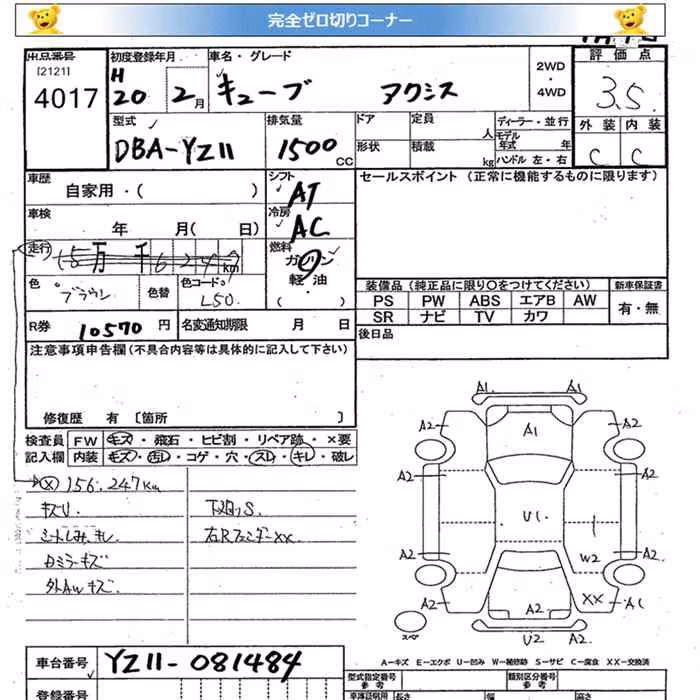 完全ゼロ切りコーナー
出品番号
[2121]
4017
初度登録年月
H
20 2月
車名・グレード
キューブ アクシス
2WD
・
4WD
評価点
3.5
外装 内装
C C
型式
DBA-YZ11
排気量
1500 CC
ドア
形状
定員
人
積載
kg
ディーラー・並行
モデル
年式 年
ハンドル 左・右
車歴
自家用・( )
シフト
AT
車検
年 月( 日)
冷房
AC
走行
万 千 km
燃料
ガソリン
軽油
・( )
色
ブラウン
色替
色コード
L50
R券
10570 円
名変通知期限 月 日
セールスポイント (正常に機能するものに限ります)
装備品 (純正品に限り○をつけてください)
PS PW ABS エアB AW
SR ナビ TV カワ
新車保証書
有・無
後日品
注意事項申告欄(不具合内容等は具体的に記入して下さい)
修復歴 有 [箇所 ]
検査員
記入欄
FW キズ・飛石・ヒビ割・リペア跡・×要
内装 キズ・汚レ・コゲ・穴・スレ・キレ・破レ
(X) 156.247km
キズU.
シートしみ、キレ
Rミラーキズ
外AWキズ
下回りS.
右RフェンダーXX.
A1 A1
A2 A1 A2
A2 A2
U1 1
A2 W2 A2
A2 A2 XX AC
スペア
U2 A2
A-キズ E-エクボ U-凹み W-補修跡 S-サビ C-腐食 XX-交換済
車台番号
YZ11-081484
登録番号
型式指定番号
参考
類別区分番号
参考
車検証明用
長さ 幅 高さ